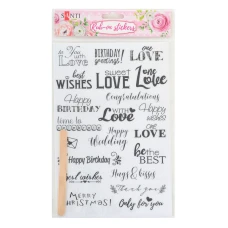 SANTI
Rub-on stickers
To you with Love
BIRTHDAY greetings!
one LOVE
Best wishes
sweet LOVE
One Love
Congratulations
Happy BIRTHDAY
with Love
Happy Birthday
Happy Wedding
one LOVE
be the BEST
Happy Birthday
best wishes
Hugs & kisses
thank you
MERRY CHRISTMAS!
Only for you